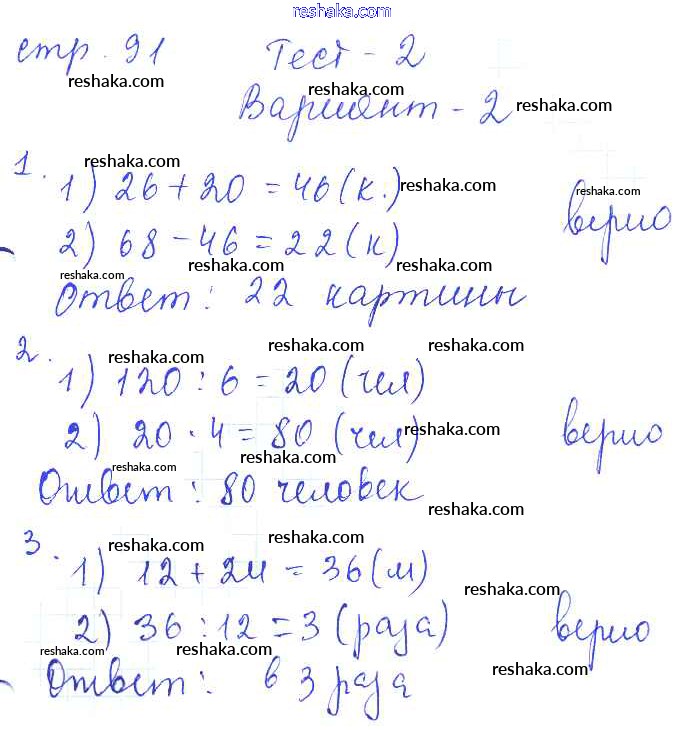 reshaka.com
стр. 91 Тест - 2
reshaka.com
reshaka.com
Вариант - 2 reshaka.com
reshaka.com
1. 1) 26 + 20 = 46 (к.) reshaka.com
reshaka.com
верно
2) 68 - 46 = 22 (к)
reshaka.com reshaka.com reshaka.com
Ответ: 22 картины
reshaka.com reshaka.com
2. reshaka.com
1) 120 : 6 = 20 (чел)
2) 20 · 4 = 80 (чел) reshaka.com верно
reshaka.com reshaka.com
Ответ: 80 человек
reshaka.com
3. reshaka.com reshaka.com
1) 12 + 24 = 36 (м)
reshaka.com
2) 36 : 12 = 3 (раза) верно
reshaka.com
reshaka.com
Ответ: в 3 раза